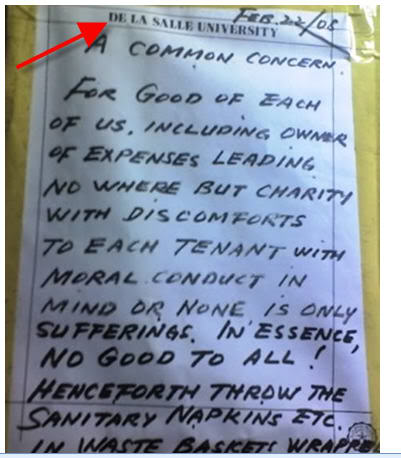 FEB. 22/08
DE LA SALLE UNIVERSITY
A COMMON CONCERN.
FOR GOOD OF EACH
OF US, INCLUDING OWNER
OF EXPENSES LEADING
NO WHERE BUT CHARITY
WITH DISCOMFORTS
TO EACH TENANT WITH
MORAL CONDUCT IN
MIND OR NONE IS ONLY
SUFFERINGS. IN ESSENCE,
NO GOOD TO ALL!
HENCEFORTH THROW THE
SANITARY NAPKINS ETC.
IN WASTE BASKETS WRAPPE